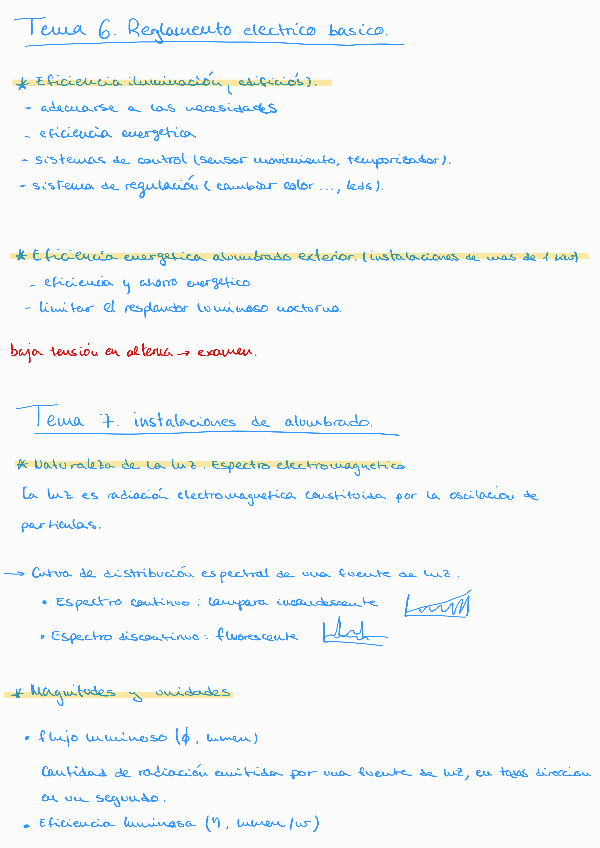 Tema 6. Reglamento electrico basico.
* Eficiencia iluminación, edificios).
- adecuarse a las necesidades
- eficiencia energetica
- sistemas de control (sensor movimiento, temporizador).
- sistema de regulación ( cambiar color ..., leds).
* Eficiencia energetica alumbrado exterior. (instalaciones de mas de 1 kw)
- eficiencia y ahorro energetico
- limitar el resplandor luminoso nocturno.
baja tensión en alterna → examen.
Tema 7. instalaciones de alumbrado.
* Naturaleza de la luz. Espectro electromagnetico
La luz es radiación electromagnetica constituida por la oscilación de
particulas.
→ Curva de distribución espectral de una fuente de luz.
• Espectro continuo : lampara incandescente
• Espectro discontinuo : fluorescente
* Magnitudes y unidades
• flujo luminoso (ϕ, lumen)
Cantidad de radiación emitida por una fuente de luz, en todas direccion
en un segundo.
• Eficiencia luminosa (η, lumen/w)